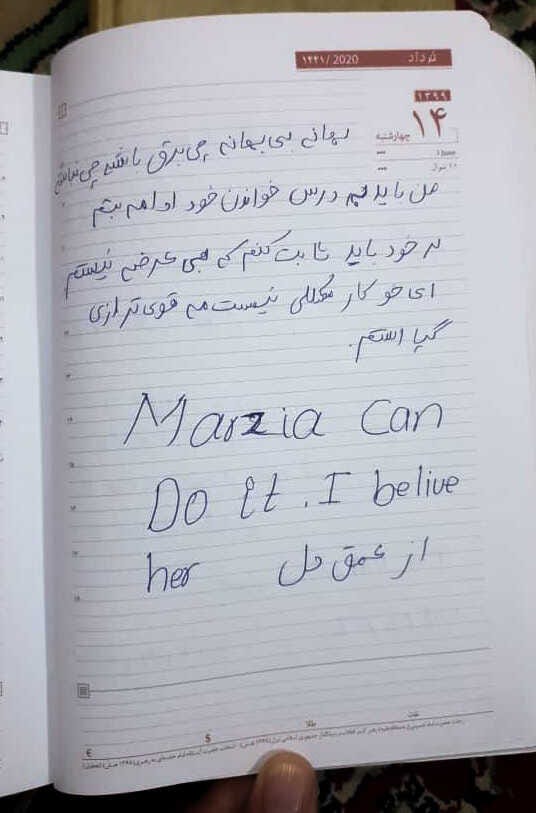 خرداد ۱۴۴۱ / 2020
۱۳۹۹
۱۴
چهارشنبه
3 June
۱۱ شوال
بهانه بی بهانه چی برق باشه چی نباشه
من باید به درس خواندن خود ادامه بتم
بر خود باید ثابت کنم که بی عرضه نیستم
ای خو کار مکللی نیست مه قوی تر ازی
گپا استم.
Marzia Can
Do it. I belive
her از عمق دل
€ $ طلا نفت